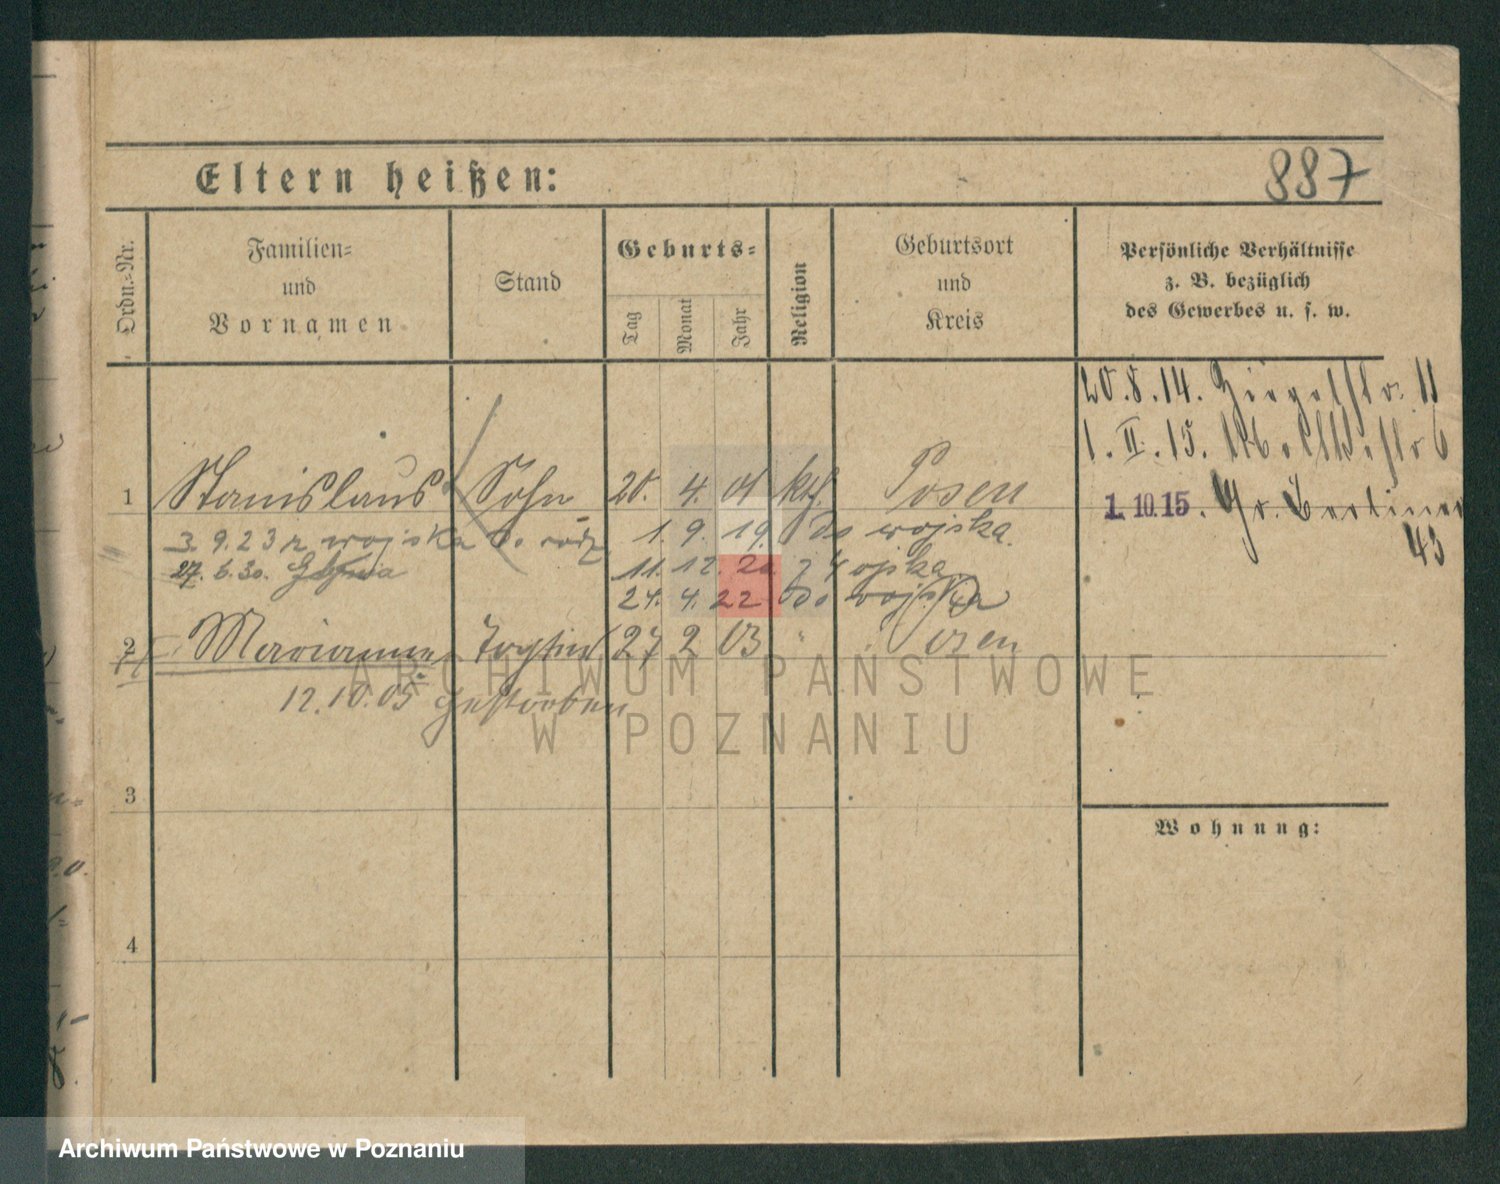 887
Eltern heißen:
Ordn.=Nr.
Familien=
und
Vornamen
Stand
Geburts=
Tag
Monat
Jahr
Religion
Geburtsort
und
Kreis
Persönliche Verhältnisse
z. B. bezüglich
des Gewerbes u. s. w.
20.8.14. Ziegelstr. 11
1. II. 15.
1. 10. 15. Gr. Berliner
43
1 Stanislaus Sohn 20. 4. 01 kth. Posen
3. 9. 23 z wojska do rodz. 1. 9. 19. do wojska.
27. 6. 30. 11. 12. 20 z wojska
24. 4. 22 do wojska
2 Marianne Tochter 27 2 03 " Posen
12.10.05 gestorben
3
4
Wohnung:
ARCHIWUM PAŃSTWOWE
W POZNANIU
Archiwum Państwowe w Poznaniu